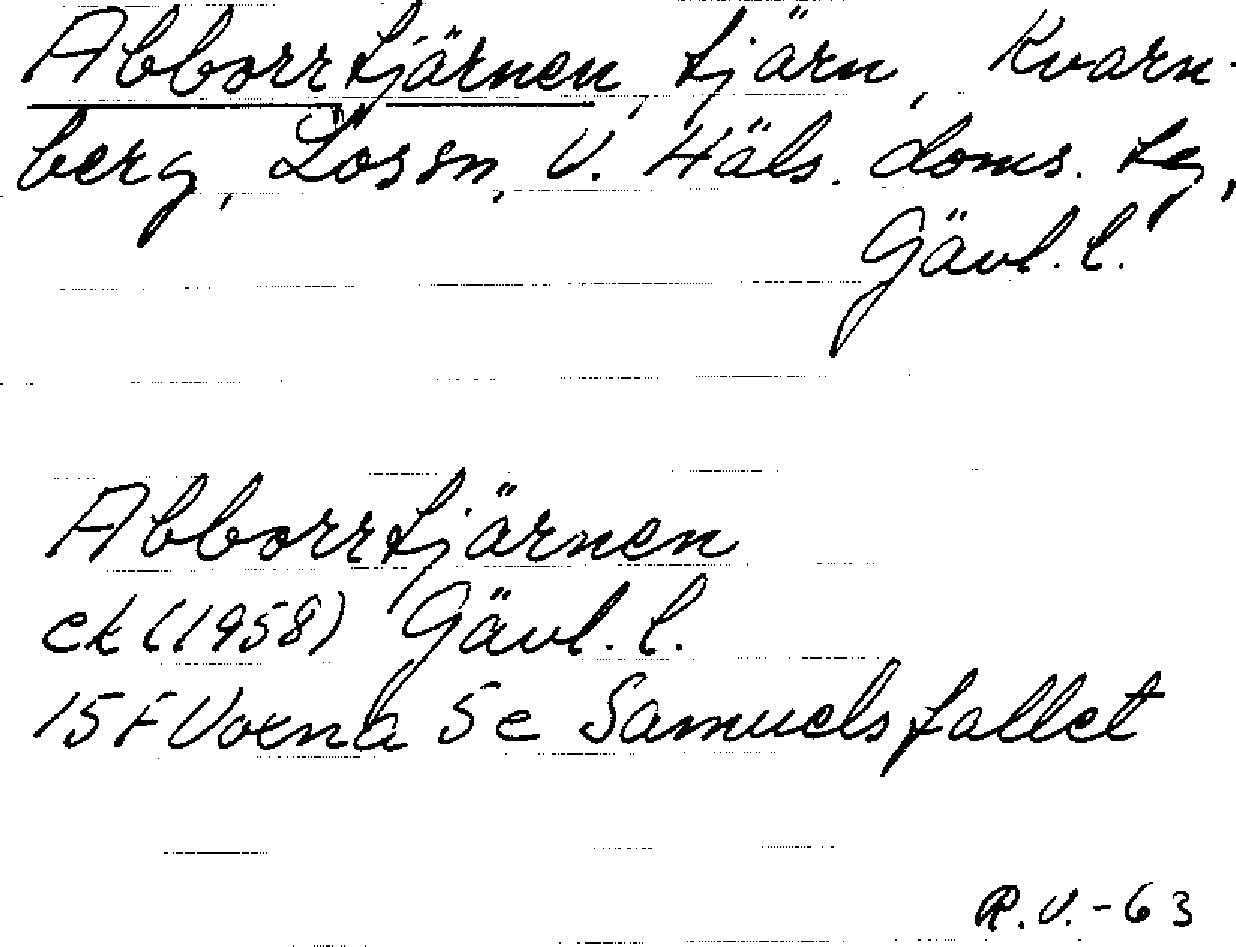 Abborrtjärnen, tjärn, Kvarn-
berg, Lossn, V. Häls. doms. tg,
Gävl. l.
Abborrtjärnen
ek (1958) Gävl. l.
15F Voxna 5e Samuelsfallet
R.V.-63